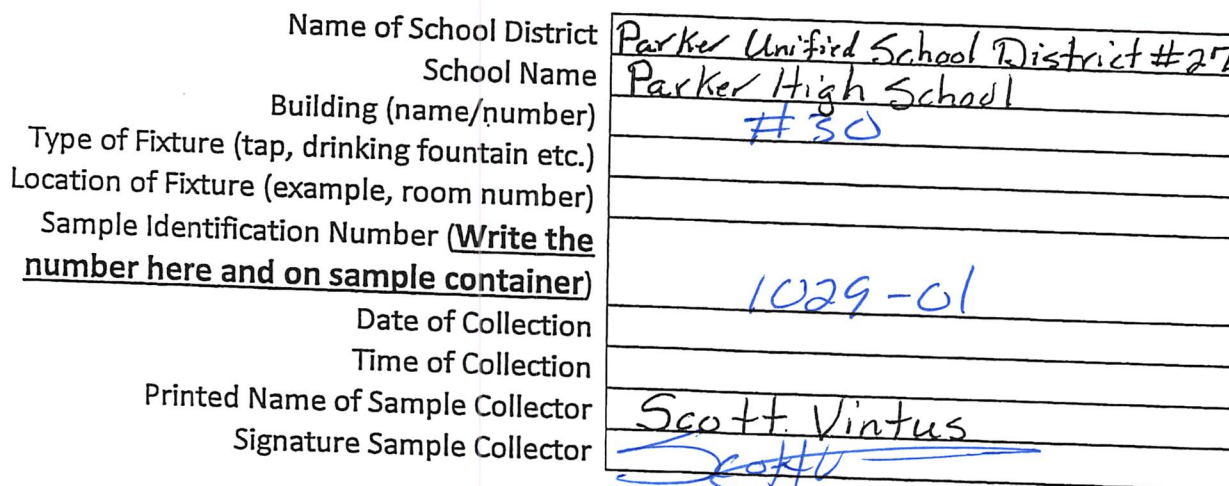 Name of School District Parker Unified School District #27
School Name Parker High School
Building (name/number) #30
Type of Fixture (tap, drinking fountain etc.)
Location of Fixture (example, room number)
Sample Identification Number (Write the
number here and on sample container) 1029-01
Date of Collection
Time of Collection
Printed Name of Sample Collector Scott Vintus
Signature Sample Collector Scott V